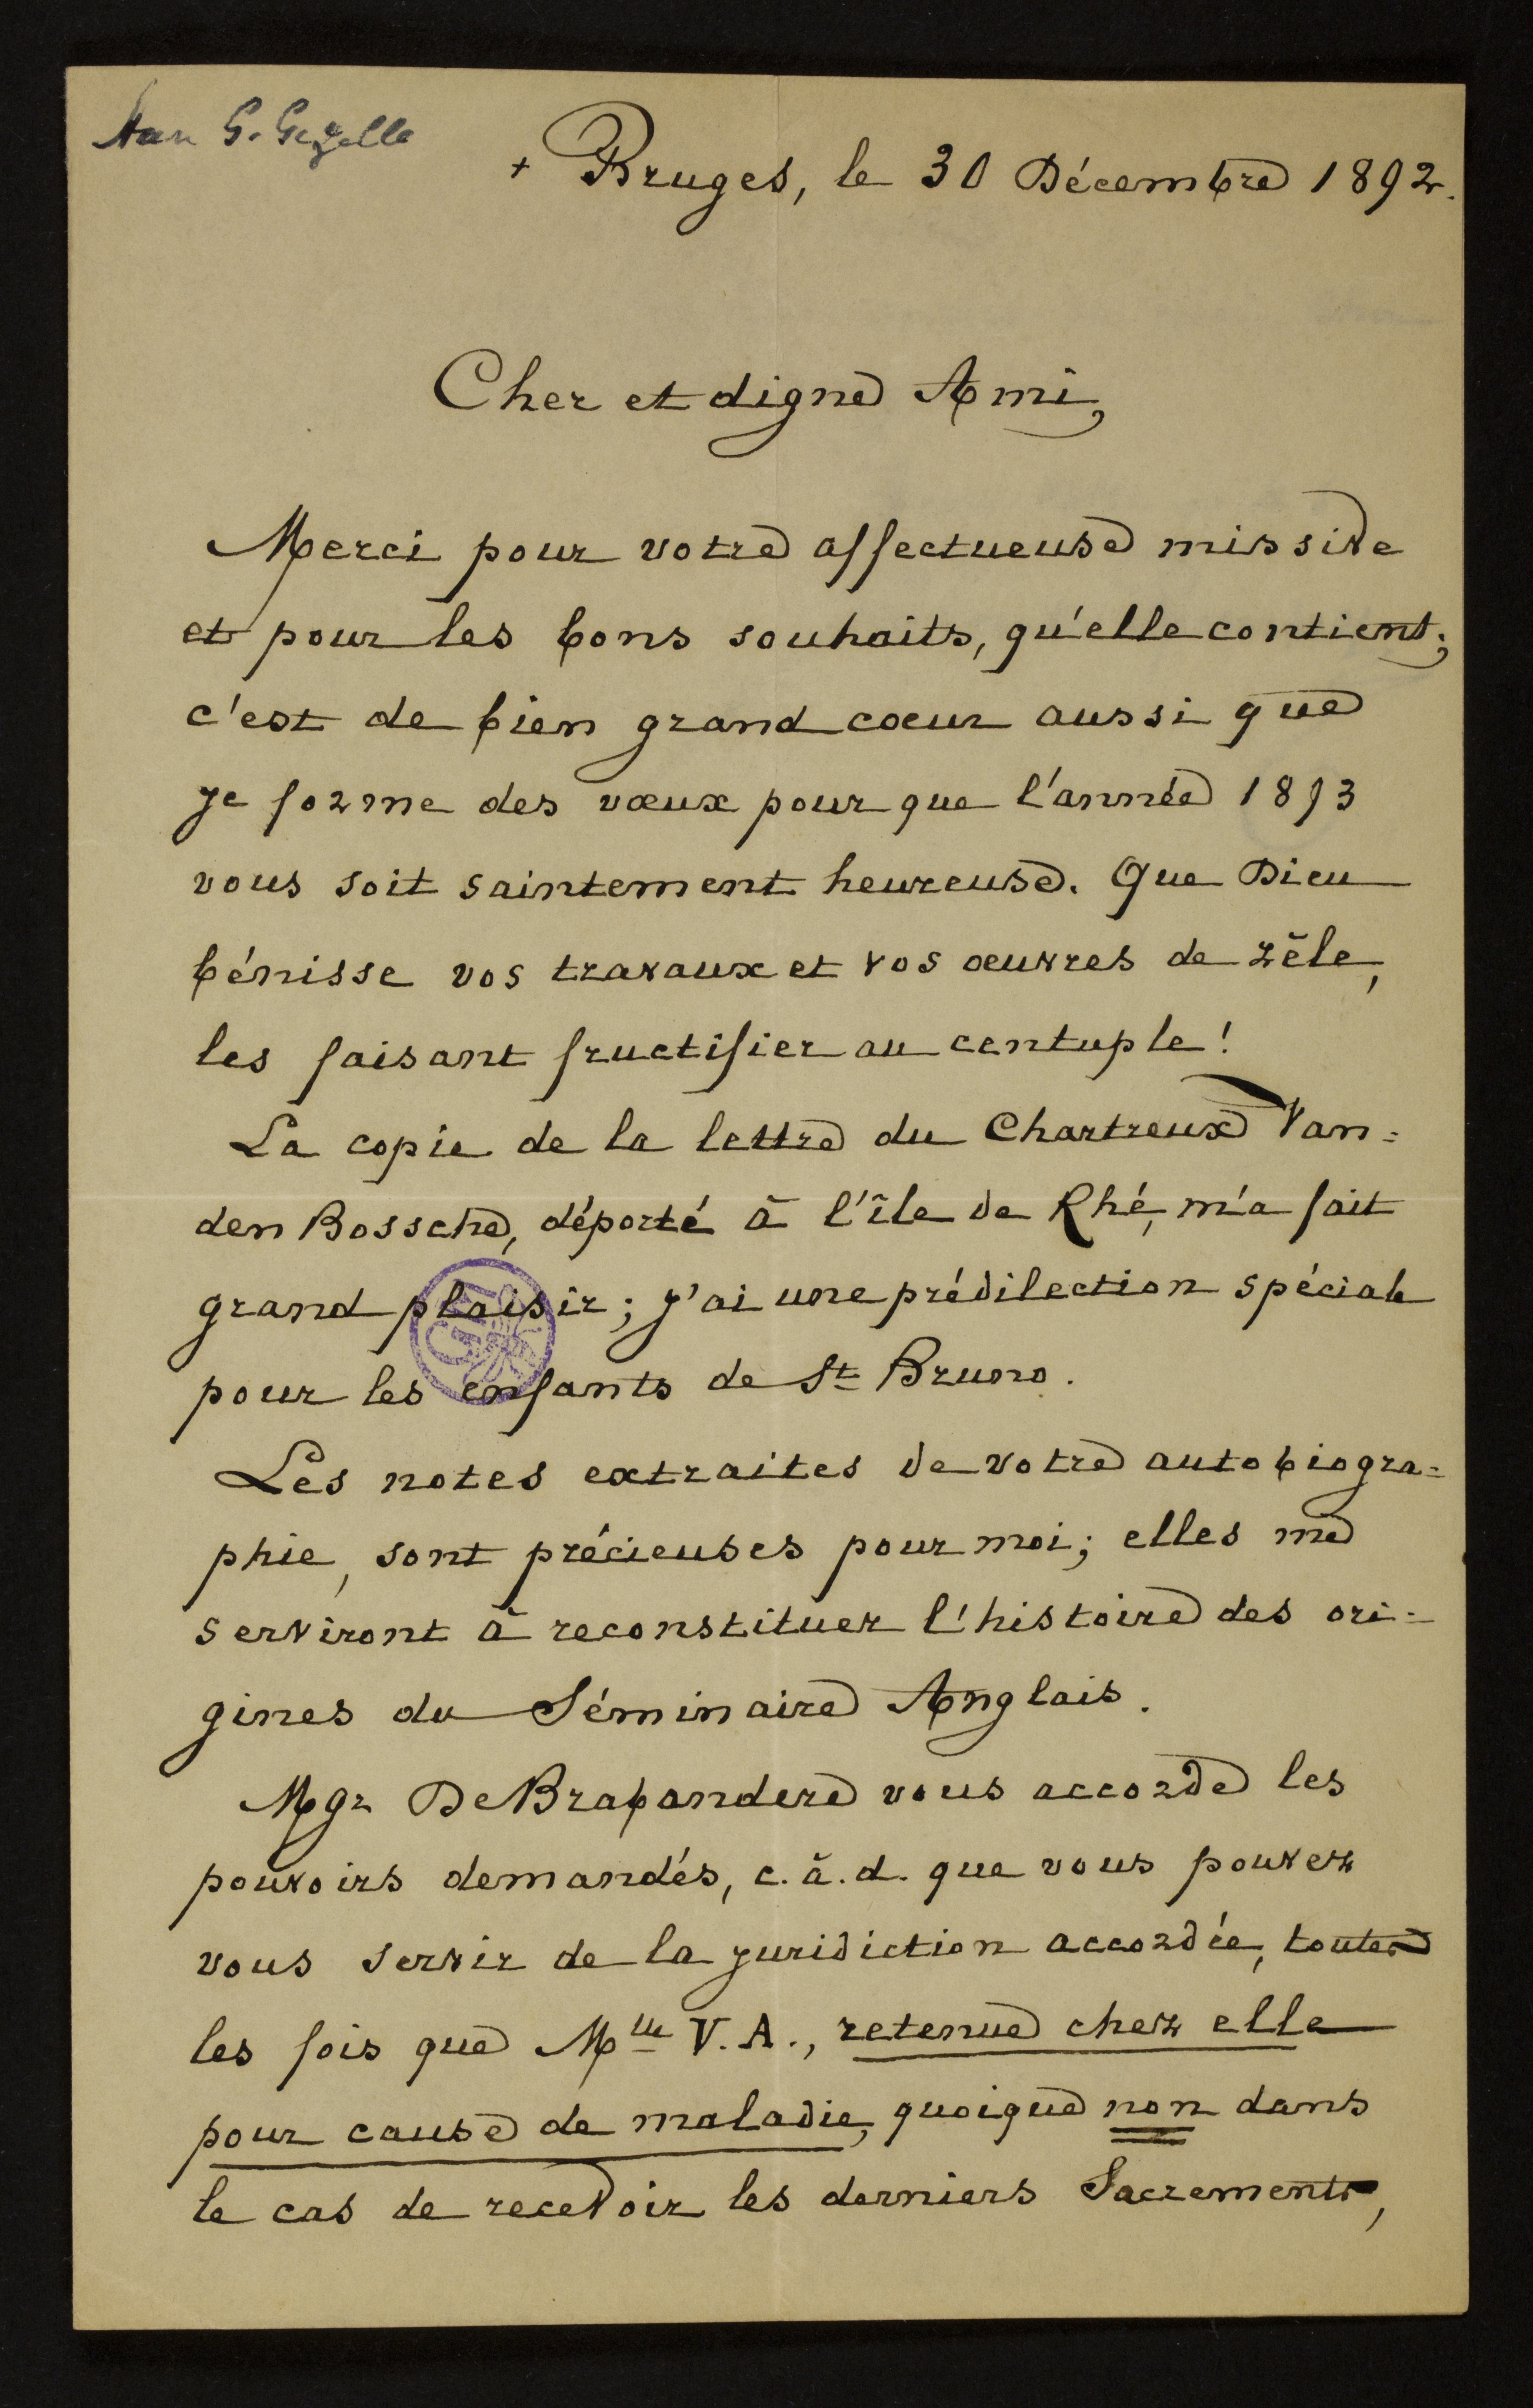 Aan G. Gezelle
+ Bruges, le 30 Décembre 1892.
Cher et digne Ami,
Merci pour votre affectueuse missive
et pour les bons souhaits, qu'elle contient;
c'est de bien grand coeur aussi que
je forme des vœux pour que l'année 1893
vous soit saintement heureuse. Que Dieu
bénisse vos travaux et vos œuvres de zèle,
les faisant fructifier au centuple!
La copie de la lettre du Chartreux Van=
den Bossche, déporté à l'île de Rhé, m'a fait
grand plaisir; j'ai une prédilection spéciale
pour les enfants de St Bruno.
Les notes extraites de votre autobiogra=
phie, sont précieuses pour moi; elles me
serviront à reconstituer l'histoire des ori=
gines du Séminaire Anglais.
Mgr De Brabandere vous accorde les
pouvoirs demandés, c.à.d. que vous pouvez
vous servir de la juridiction accordée, toutes
les fois que Mlle V.A., retenue chez elle
pour cause de maladie, quoique non dans
le cas de recevoir les derniers Sacrements,